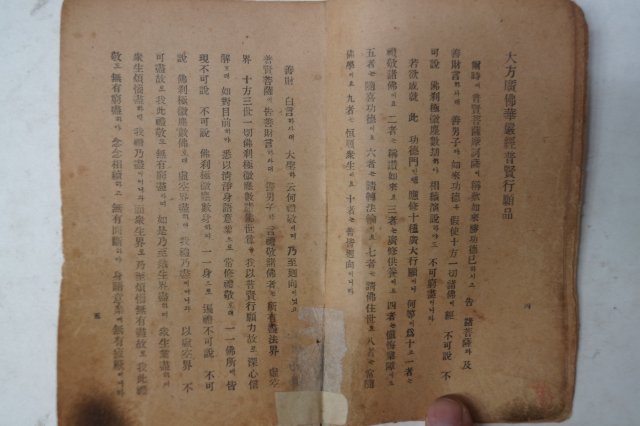 大方廣佛華嚴經普賢行願品
爾時에 普賢菩薩摩訶薩이 稱歎如來勝功德已하시고 告 諸菩薩과 及
善財言하사대 善男子야 如來功德은 假使十方一切諸佛이 經 不可說 不
可說 佛刹極微塵數劫하야 相續演說하야도 不可窮盡이니라
若欲成就 此 功德門인댄 應修十種廣大行願이니 何等이 爲十고 一者는
禮敬諸佛이오 二者는 稱讚如來오 三者는 廣修供養이오 四者는 懺悔業障이오
五者는 隨喜功德이오 六者는 請轉法輪이오 七者는 請佛住世오 八者는 常隨
佛學이오 九者는 恒順衆生이오 十者는 普皆迴向이니라
四
善財 白言하사대 大聖하 云何禮敬이며 乃至迴向이닛고
普賢菩薩이 告善財言하사대 善男子야 言禮敬諸佛者는 所有盡法界 虛空
界 十方三世一切佛刹極微塵數諸佛世尊을 我以普賢行願力故로 深心信
解호대 如對目前하야 悉以淸淨身語意業으로 常修禮敬호대 一一佛所에 皆
現不可說 不可說 佛刹極微塵數身하야 一一身으로 遍禮不可說 不可
說 佛刹極微塵數佛호대 虛空界盡하면 我禮乃盡이어니와 以虛空界 不
可盡故로 我此禮敬도 無有窮盡이며 如是乃至衆生界盡하며 衆生業盡하며
衆生煩惱盡하면 我禮乃盡이어니와 而衆生界로 乃至煩惱無有盡故로 我此禮
敬도 無有窮盡하야 念念相續하고 無有間斷하야 身語意業에 無有疲厭이니라
五